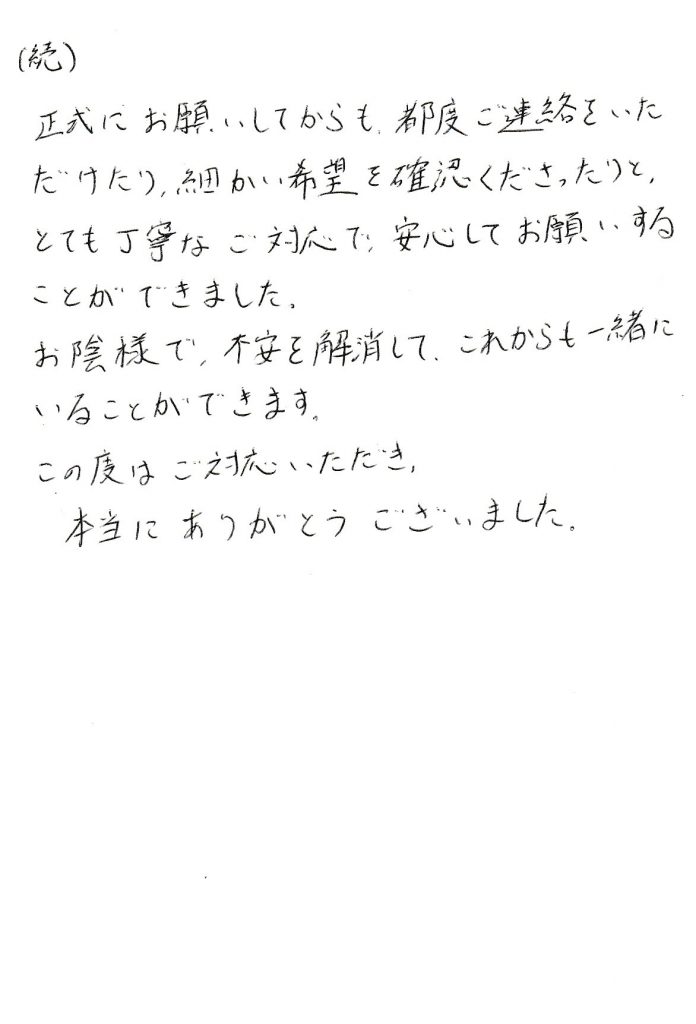 (続)
正式にお願いしてからも、都度ご連絡をいた
だけたり、細かい希望を確認くださったりと、
とても丁寧なご対応で、安心してお願いする
ことができました。
お陰様で、不安を解消して、これからも一緒に
いることができます。
この度はご対応いただき、
本当にありがとうございました。